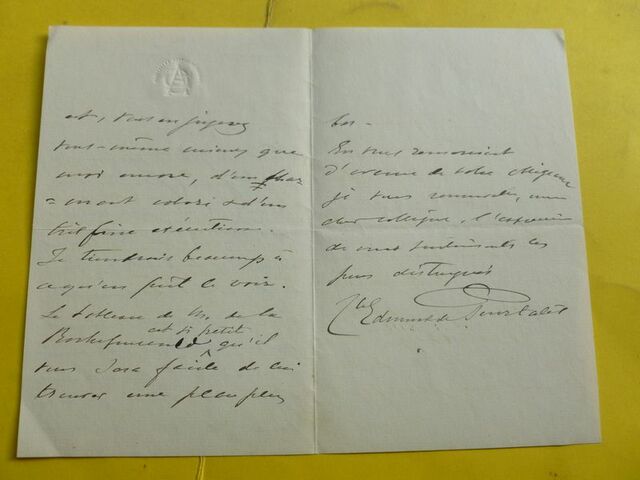 et, vous en jugerez
vous-même mieux que
moi encore, d'un char
= mant coloris & d'une
très fine exécution.
Je tiendrais beaucoup à
ce qu'on put le voir.
Le tableau de M. de la
Rochefoucauld est si petit qu'il
vous sera facile de lui
trouver une place plus
bas -
En vous remerciant
d'avance de votre obligeance
je vous renouvelle, mon
cher collègue, l'expression
de mes sentiments les
plus distingués
Cte Edmond de Pourtalès